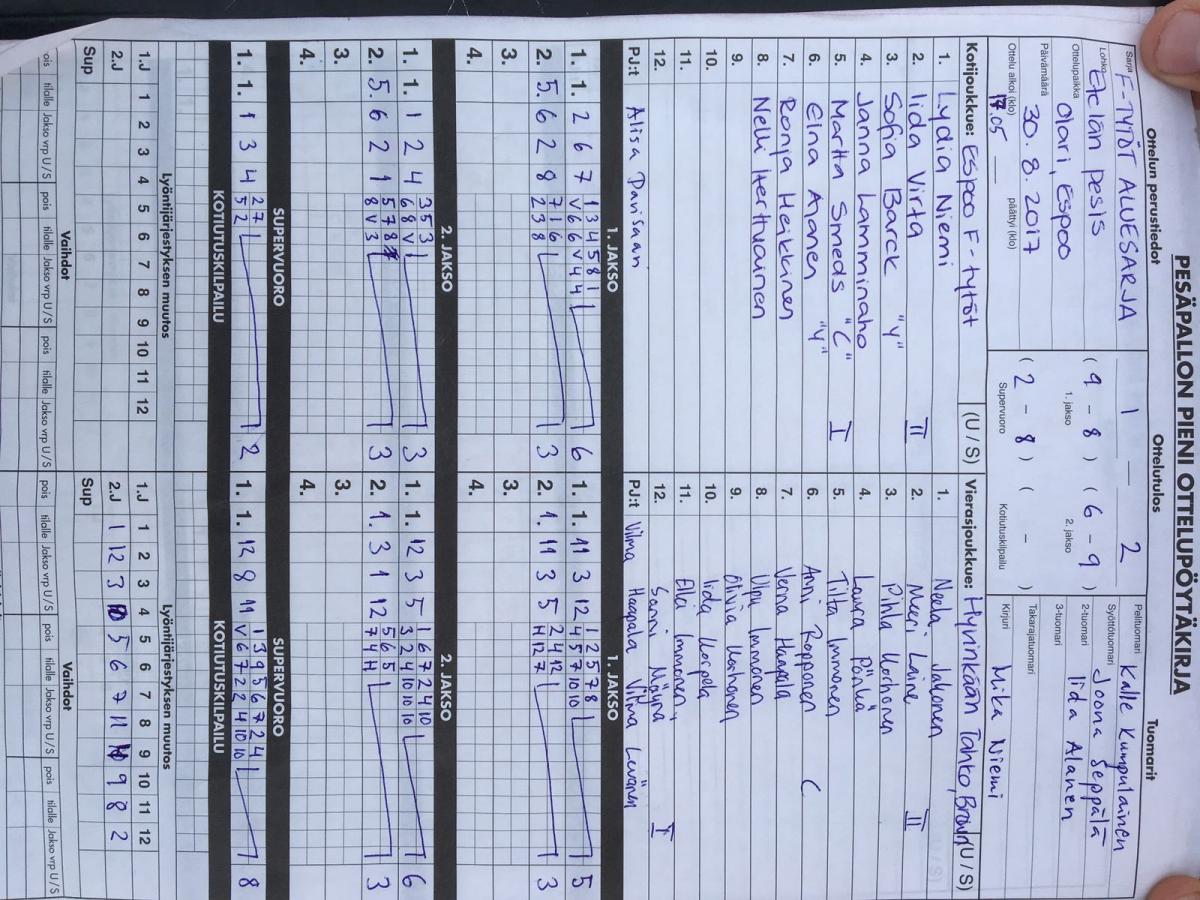 PESÄPALLON PIENI OTTELUPÖYTÄKIRJA
Ottelun perustiedot
Sarja F-TYTÖT ALUESARJA
Lohko Etelän pesis
Ottelupaikka Olari, Espoo
Päivämäärä 30.8.2017
Ottelu alkoi (klo) 17.05 päättyi (klo)
Ottelutulos
1 — 2
( 9 - 8 ) ( 6 - 9 )
1. jakso 2. jakso
( 2 - 8 ) ( - )
Supervuoro Kotiutuskilpailu
Tuomarit
Pelituomari Kalle Kumpulainen
Syöttötuomari Joona Seppälä
2-tuomari Iida Alanen
3-tuomari
Takarajatuomari
Kirjuri Mika Niemi
Kotijoukkue: Espoo F-tytöt (U / S)
1. Lydia Niemi
2. Iida Virta II
3. Sofia Barck "Y"
4. Janna Lamminaho
5. Martta Smeds "C" I
6. Elna Ahanen "V"
7. Ronja Heikkinen
8. Nelli Herttuainen
9.
10.
11.
12.
PJ:t Alisa
Vierasjoukkue: Hyvinkään Tahko, Brown (U / S)
1. Neela Jakonen
2. Meri Laine II
3. Pihla Korhonen
4. Laura Pönkä
5. Tilta Immonen
6. Anni Ropponen C
7. Verna Haapala
8. Ulpu Immonen
9. Olivia Korhonen
10. Iida Korpela
11. Ellei Immonen
12. Sanni I
PJ:t Vilma Haapala Vilma Levänen
1. JAKSO
1. 1. 2 6 7 1 3 4 5 8 1 6
V 6 6 V 4 4
2. 5. 6 2 8 7 1 6 3
2 3 8
3.
4.
1. 1. 11 3 12 1 2 5 7 8 5
4 5 7 10 10
2. 1. 11 3 5 2 4 12 3
H 12 7
3.
4.
2. JAKSO
1. 1. 1 2 4 3 5 3 3
6 8 V
2. 5. 6 2 1 5 7 8 3
8 V 3
3.
4.
1. 1. 12 3 5 1 6 7 2 4 10 6
3 2 4 10 10 10
2. 1. 3 1 12 5 6 5 3
7 4 H
3.
4.
SUPERVUORO
1. 1. 1 3 4 2 7 2
5 2
1. 1. 12 8 11 1 3 9 5 6 7 2 4 8
V 6 7 2 2 4 10 10
KOTIUTUSKILPAILU
KOTIUTUSKILPAILU
Lyöntijärjestyksen muutos
1.J 1 2 3 4 5 6 7 8 9 10 11 12
2.J
Sup
Lyöntijärjestyksen muutos
1.J 1 2 3 4 5 6 7 8 9 10 11 12
2.J 1 12 3 5 6 7 11 9 8 2
Sup
Vaihdot
pois tilalle Jakso vrp U / S pois tilalle Jakso vrp U / S pois tilalle Jakso vrp U / S
Vaihdot
pois tilalle Jakso vrp U / S pois tilalle Jakso vrp U / S pois tilalle Jakso vrp U / S